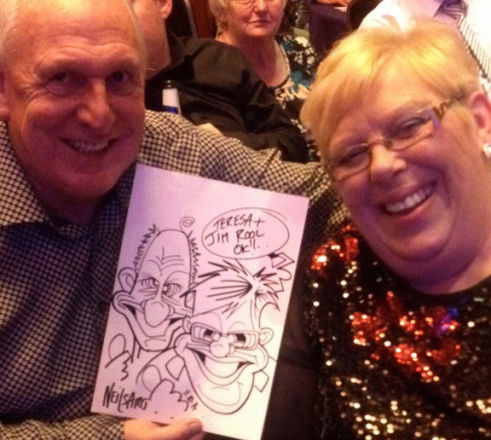 TERESA +
JIM ROOL
OK!!...